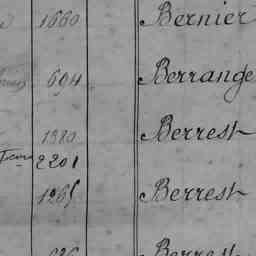 1660 Bernier
694 Berrange
1380 Berrest
2201
1265 Berrest
Berrest